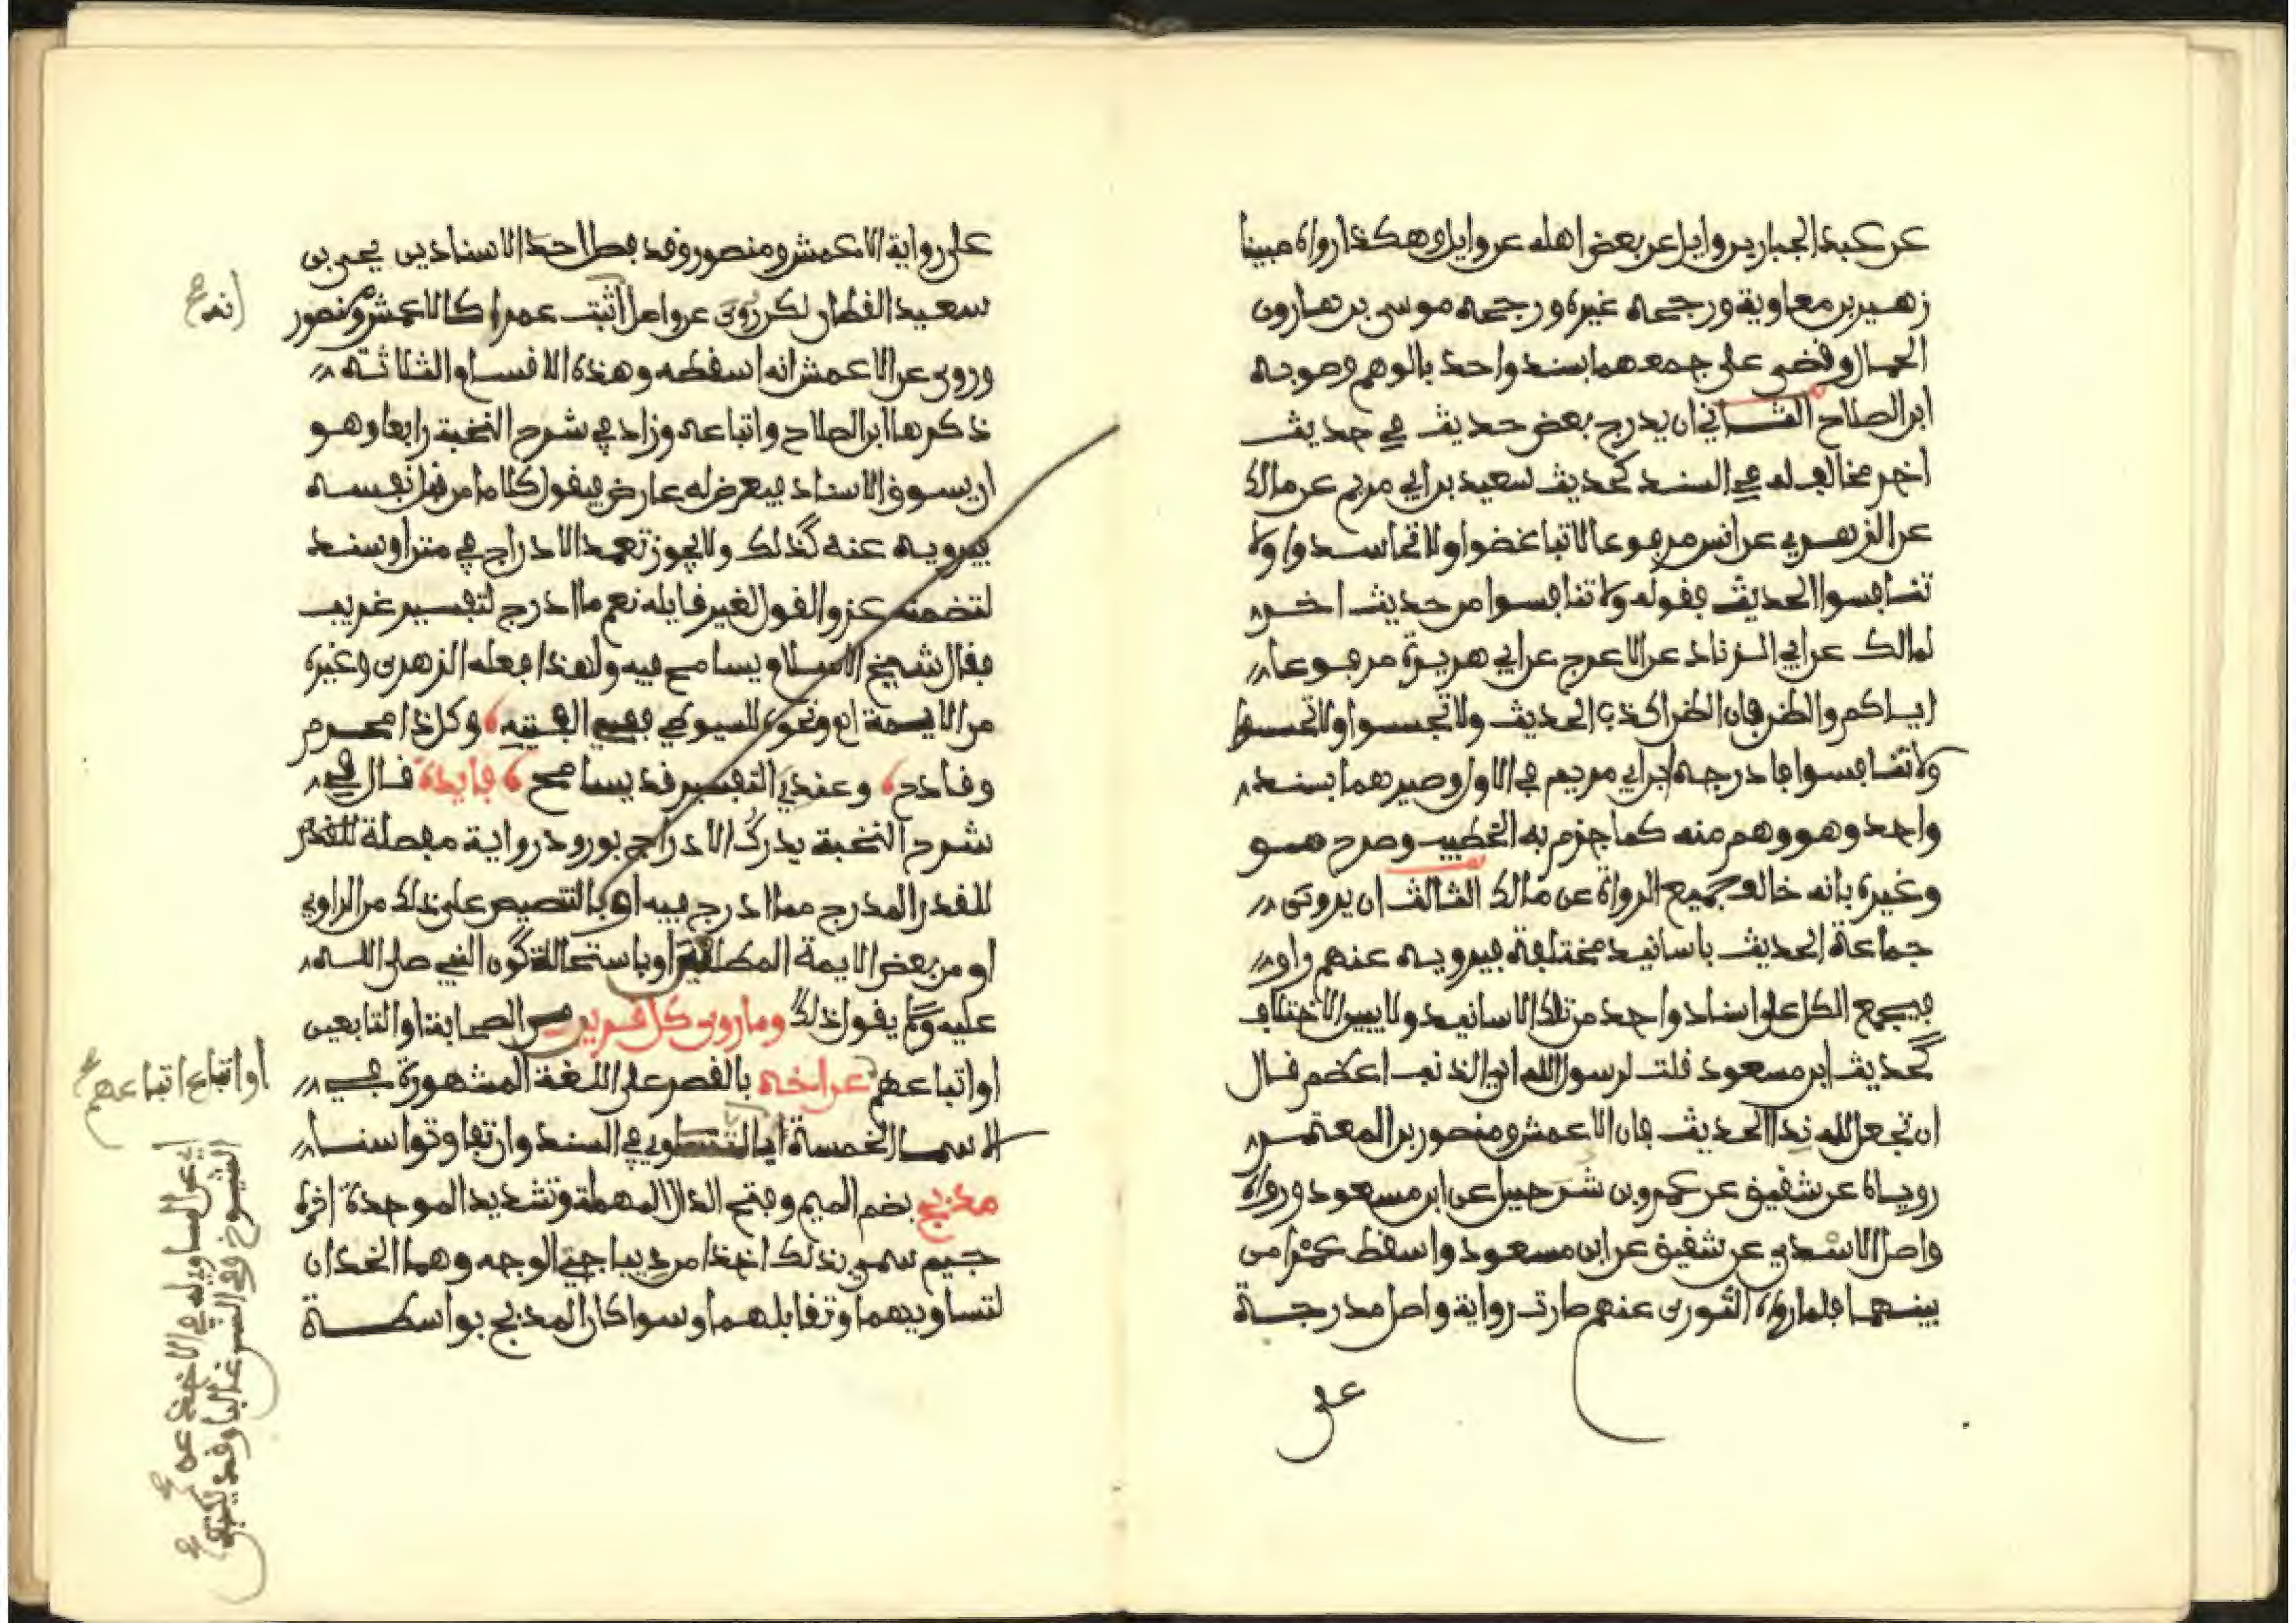 عن عبد الجبار بن وايل عن بعض اهله عن وايل وهكذا رواه مبينا
زهير بن معاوية ورجحه غيره ورجحه موسى بن هارون
الحمال وقضى على جمعهما بسند واحد بالوهم وصوبه
ابن الصلاح الثاني ان يدرج بعض حديث في حديث
اخر مخالف له في السند كحديث سعيد بن ابي مريم عن مالك
عن الزهري عن انس مرفوعا لا تباغضوا ولا تحاسدوا ولا
تنافسوا الحديث فقوله ولا تنافسوا من حديث اخر
لمالك عن ابي الزناد عن الاعرج عن ابي هريرة مرفوعا
اياكم والظن فان الظن اكذب الحديث ولا تجسسوا ولا تحسسوا
ولا تنافسوا فادرجه ابن ابي مريم في الاول وصيرهما بسند
واحد وهو وهم منه كما جزم به الخطيب وصرح هو
وغيره بانه خالف جميع الرواة عن مالك الثالث ان يروى
جماعة الحديث باسانيد مختلفة فيرويه عنهم راو
فيجمع الكل على اسناد واحد من تلك الاسانيد ولا يبين الاختلاف
كحديث ابن مسعود قلت لرسول الله اي الذنب اعظم قال
ان تجعل لله ندا الحديث فان الاعمش ومنصور بن المعتمر
روياه عن شقيق عن عمرو بن شرحبيل عن ابن مسعود ورواه
واصل الاسدي عن شقيق عن ابن مسعود واسقط عمرا من
بينهما فلما رواه الثوري عنهم صارت رواية واصل مدرجة
على
على رواية الاعمش ومنصور وقد فصل احد الاسنادين يحيى بن
سعيد القطان لكن روى عن واصل اثبت عمرا كالاعمش ومنصور
انه صح
وروي عن الاعمش انه اسقطه وهذه الاقسام الثلاثة
ذكرها ابن الصلاح واتباعه وزاد في شرح النخبة رابعا وهو
ان يسوق الاسناد فيعرض له عارض فيقول كلاما من قبل نفسه
فيرويه عنه كذلك ولا يجوز تعمد الادراج في متن او سند
لتضمنه عزو القول لغير قايله نعم ما ادرج لتفسير غريب
فقال شيخ الاسلام يسامح فيه ولهذا فعله الزهري وغيره
من الايمة اه ونحوه للسيوطي ففي الفيته وكل ذا محرم
وقادح وعندي التفسير قد يسامح فايدة قال في
شرح النخبة يدرك الادراج بورود رواية مفصلة للقدر
للقدر المدرج مما ادرج فيه او بالتنصيص على ذلك من الراوي
او من بعض الايمة المطلعين او باستحالة كون النبي صلى الله
عليه وسلم يقول ذلك وما روى كل قرين من الصحابة او التابعين
او اتباعهم عن اخه بالقصر على اللغة المشهورة في
او اتباع اتباعهم صح
الاسما الخمسة اي المتساوي في السند وان تفاوتوا سنا
اي عن المساوي له في الاخذ عن
الشيوخ وفي السن غالبا وقد يكتفى
مدبج بضم الميم وفتح الدال المهملة وتشديد الموحدة اخره
جيم سمي بذلك اخذا من ديباجتي الوجه وهما الخدان
لتساويهما وتقابلهما وسوا كان المدبج بواسطة